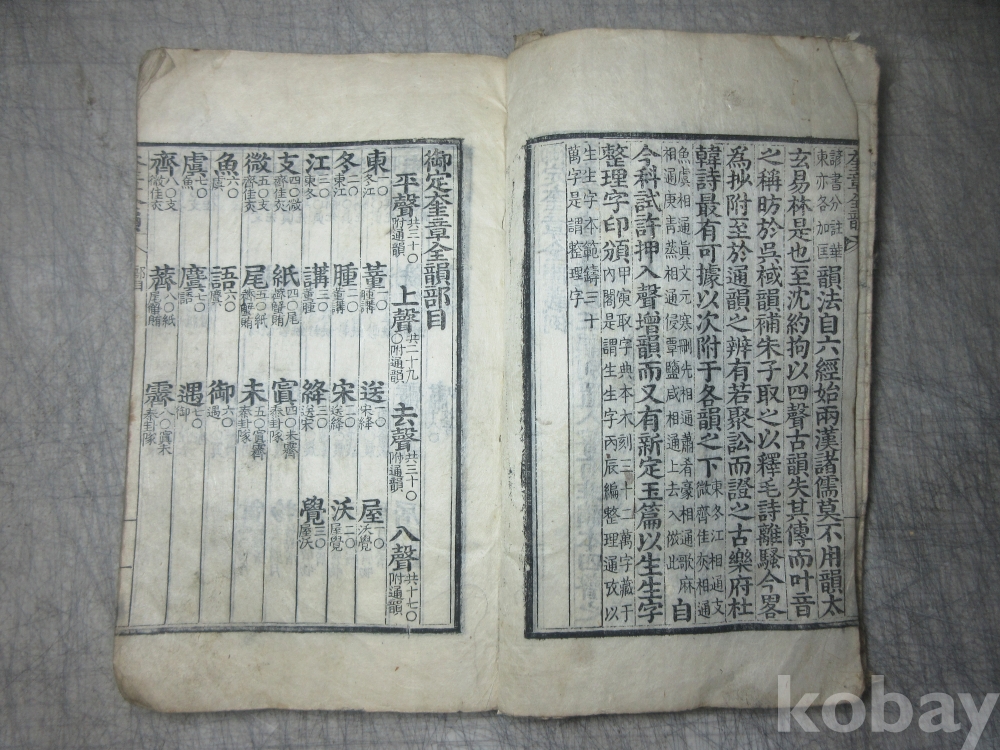 奎章全韻
諺書分註華
東亦各加匡
韻法自六經始兩漢諸儒莫不用韻太
玄易林是也至沈約拘以四聲古韻失其傳而叶音
之稱昉於吳棫韻補朱子取之以釋毛詩離騷今畧
爲拟附至於通韻之辨有若聚訟而證之古樂府杜
韓詩最有可據以次附于各韻之下
東冬江相通支
微齊佳灰相通
魚虞相通眞文元寒刪先相通蕭肴豪相通歌麻
相通庚青蒸相通侵覃鹽咸相通上去入倣此
自
今科試許押入聲增韻而又有新定玉篇以生生字
整理字印頒
甲寅取字典本木刻三十二萬字藏于
內閣是謂生生字丙辰編整理通攷以
生生字本範鑄三十
萬字是謂整理字
御定奎章全韻部目
平聲 共三十〇附通韻 上聲 共二十九〇附通韻 去聲 共三十〇附通韻 入聲 共十七〇附通韻
東 一〇冬江 董 一〇腫講 送 一〇宋絳 屋 一〇沃覺
冬 二〇東江 腫 二〇董講 宋 二〇送絳 沃 二〇屋覺
江 三〇東冬 講 三〇董腫 絳 三〇送宋 覺 三〇屋沃
支 四〇微齊佳灰 紙 四〇尾薺蟹賄 寘 四〇未霽泰卦隊
微 五〇支齊佳灰 尾 五〇紙薺蟹賄 未 五〇寘霽泰卦隊
魚 六〇虞 語 六〇麌 御 六〇遇
虞 七〇魚 麌 七〇語 遇 七〇御
齊 八〇支微佳灰 薺 八〇紙尾蟹賄 霽 八〇寘未泰卦隊
kobay